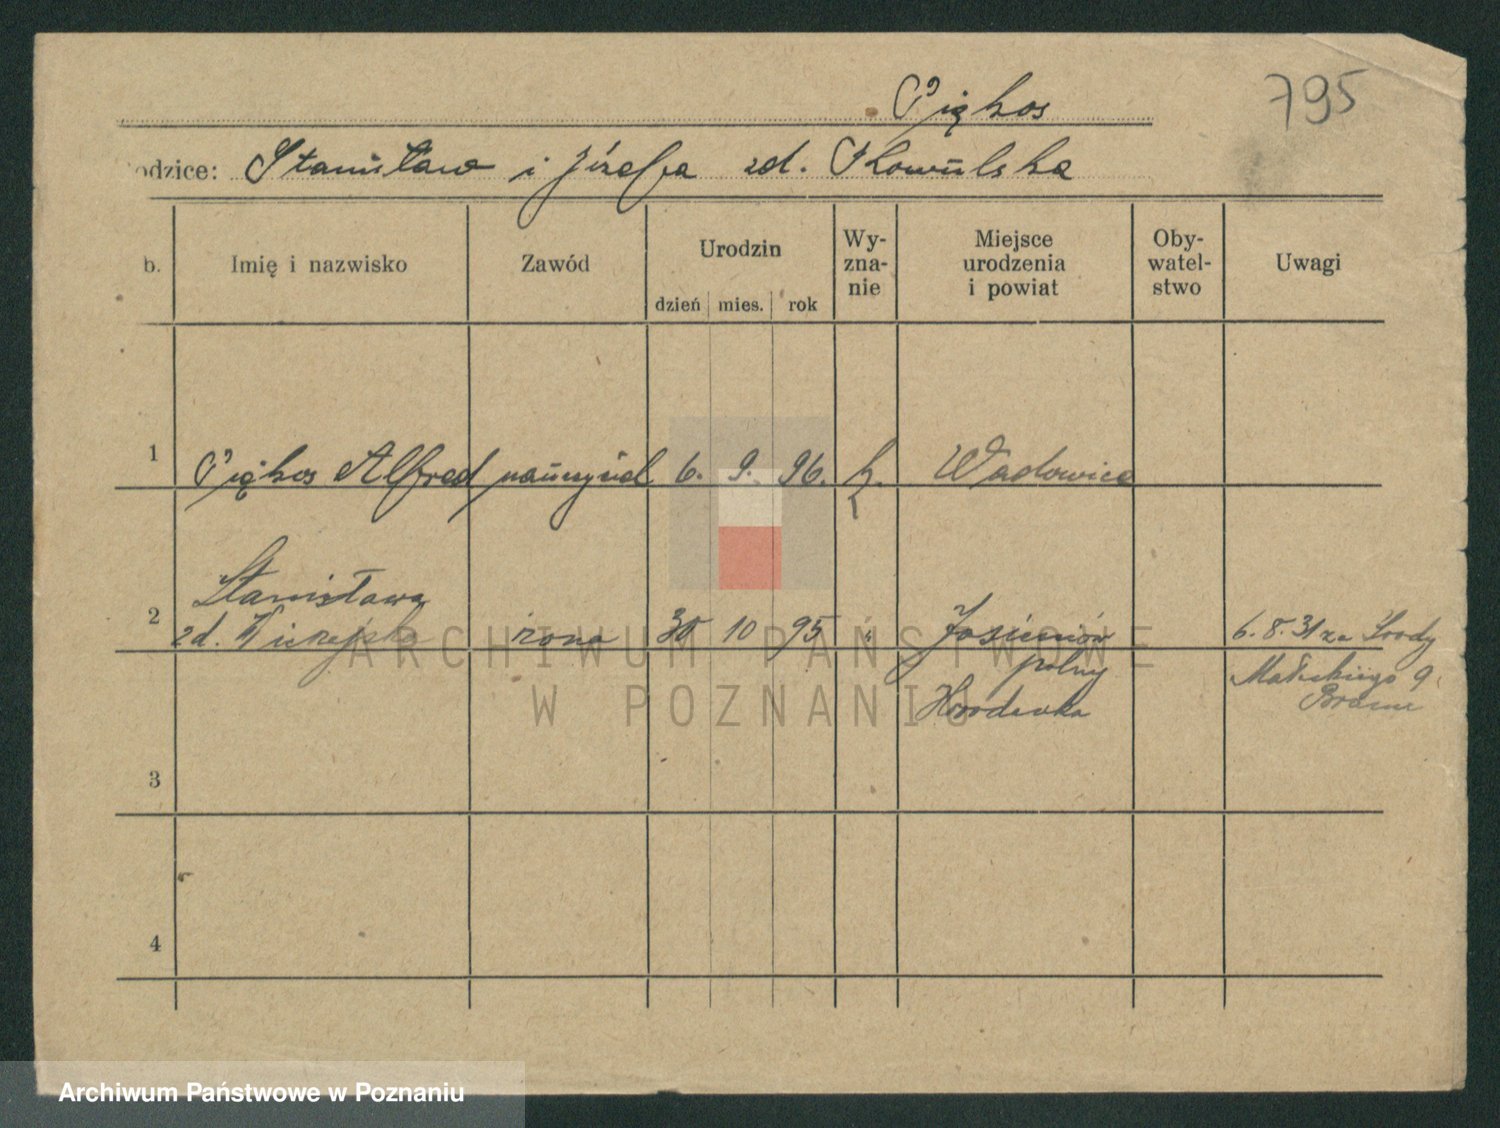 Piękos
795
odzice: Stanisław i Józefa zd. Kowulska
b. Imię i nazwisko Zawód Urodzin Wy-zna-nie Miejsce urodzenia i powiat Oby-watel-stwo Uwagi
dzień mies. rok
1 Piękos Alfred nauczyciel 6. 9. 96. k. Wadowice
Stanisława
2 zd. żona 30 10 95 " Jasienów 6. 8. 31 za Środy
polny Małeckiego 9
Horodenka
3
4
ARCHIWUM PAŃSTWOWE
W POZNANIU
Archiwum Państwowe w Poznaniu